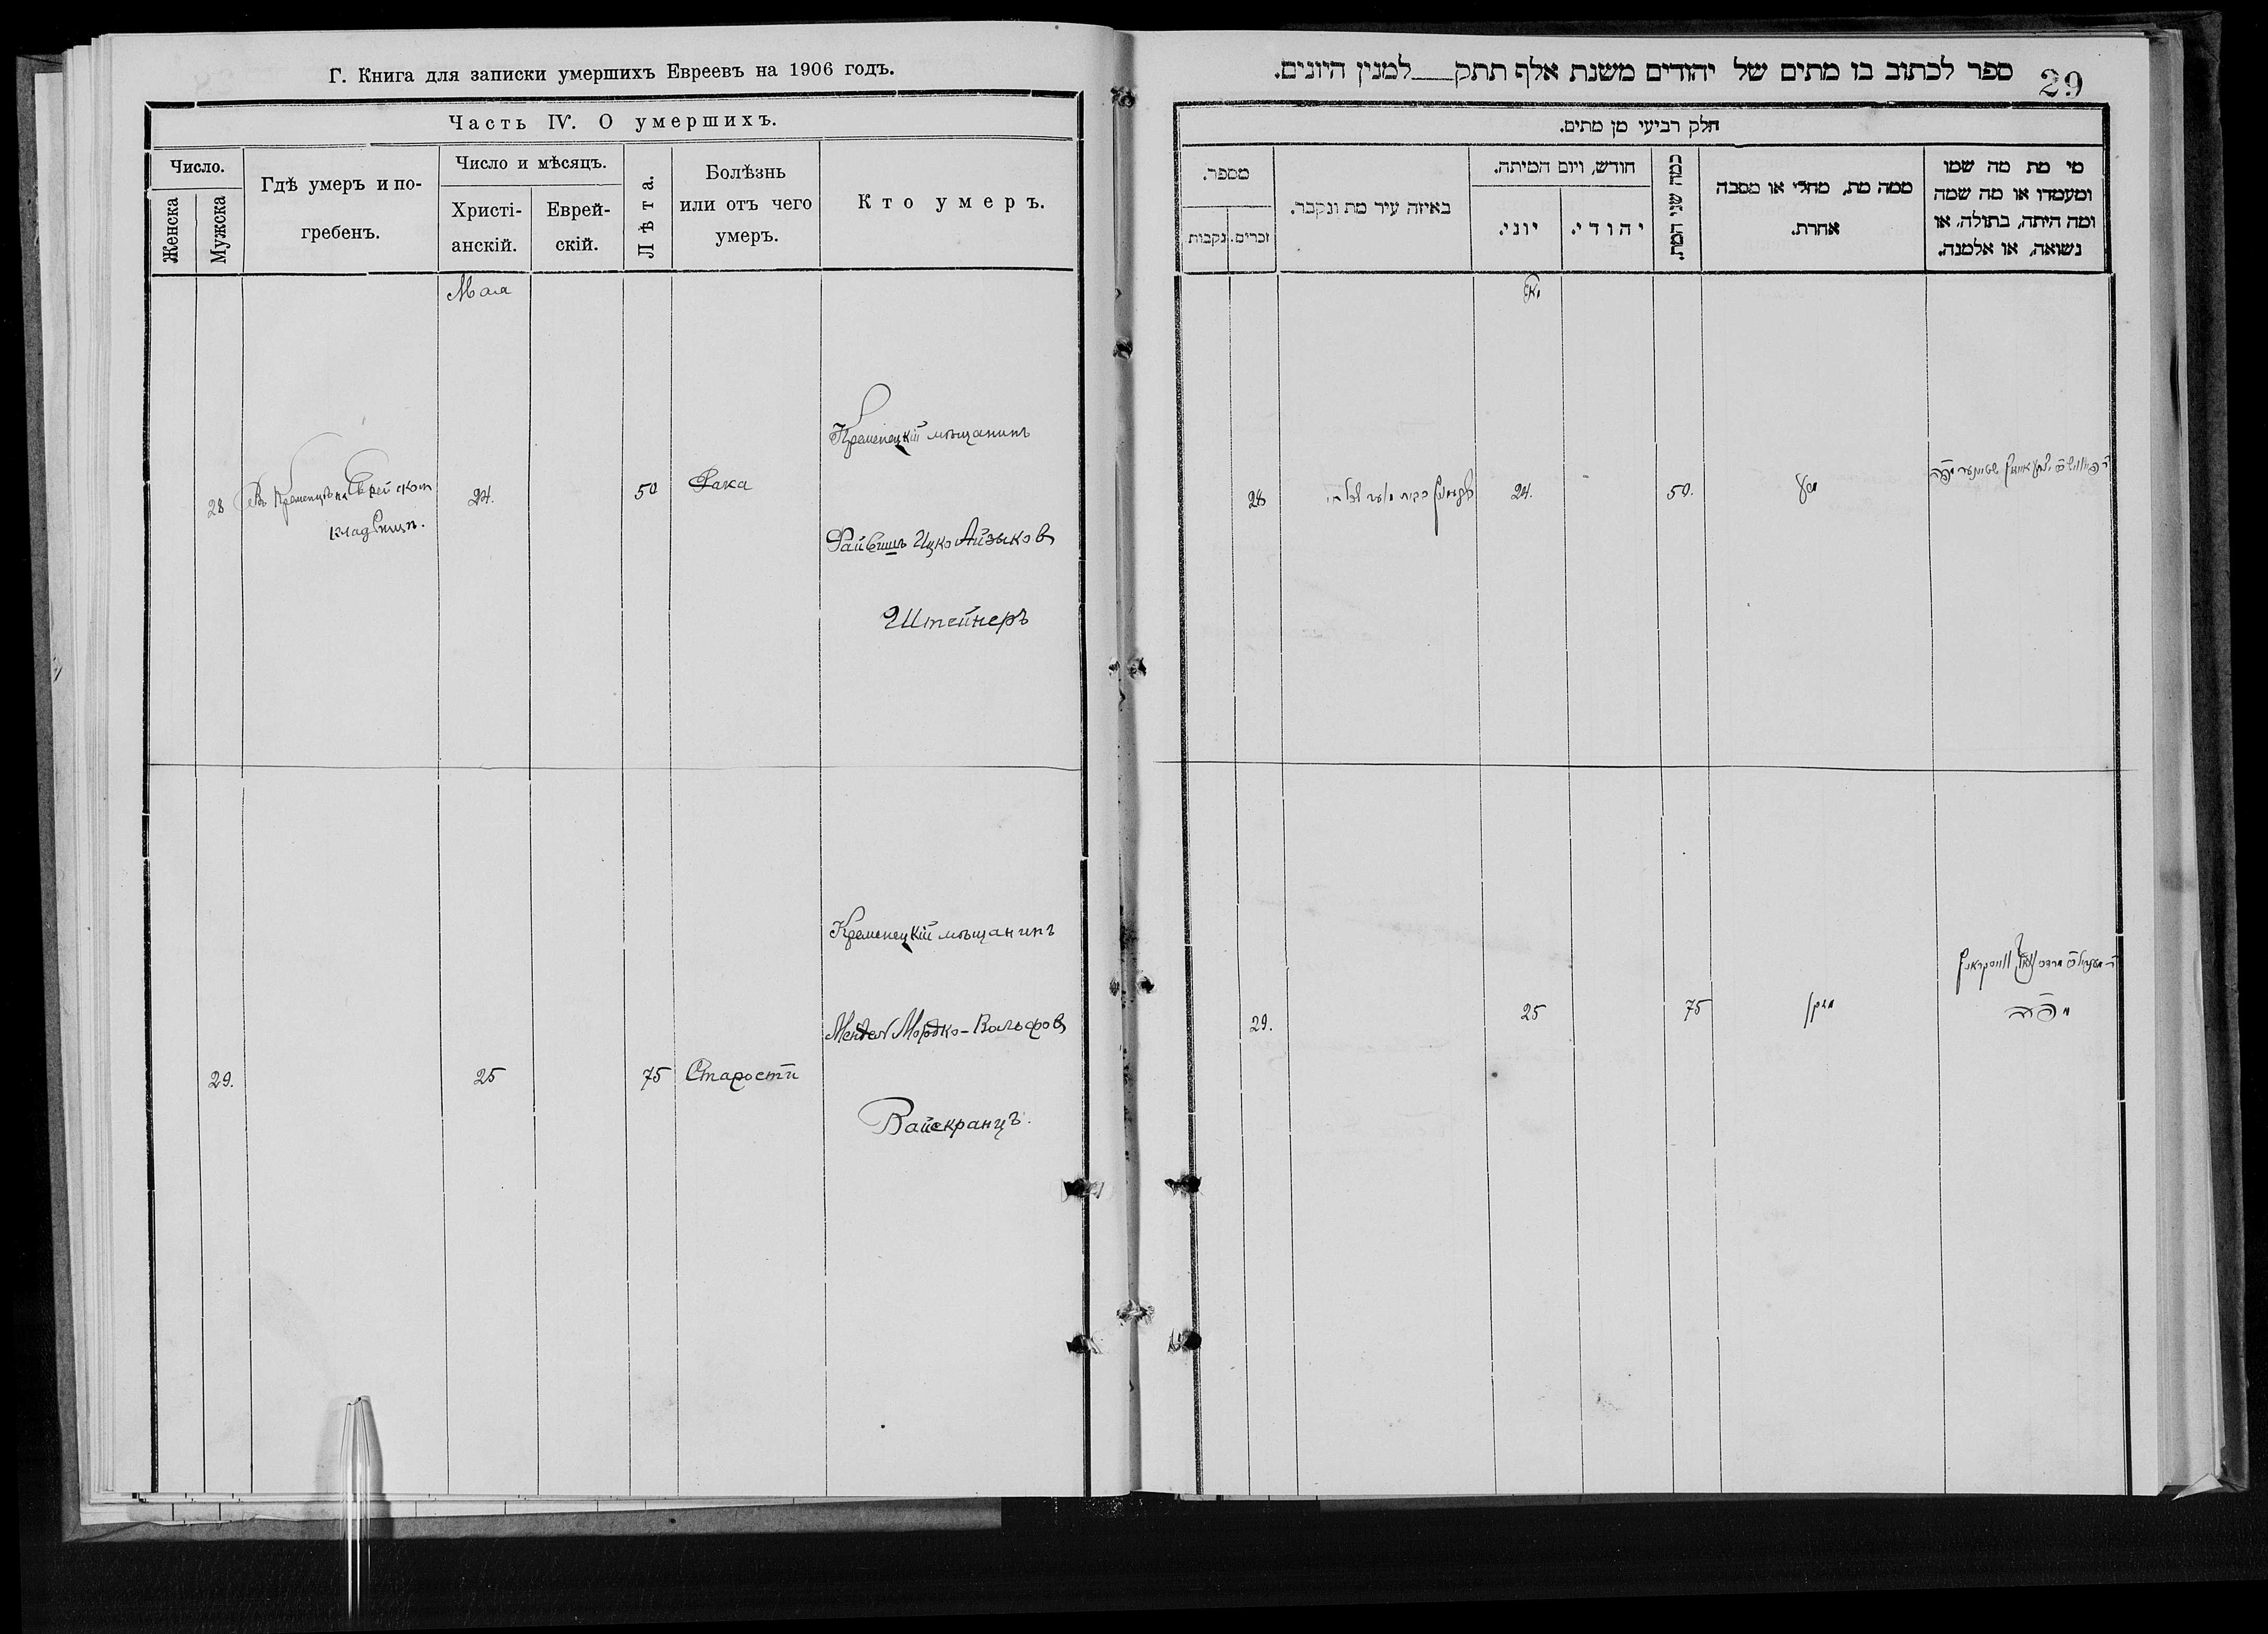 Г. Книга для записки умершихъ Евреевъ на 1906 годъ.
Часть IV. О умершихъ.
Число.
Женска
Мужска
Гдѣ умеръ и по-
гребенъ.
Число и мѣсяцъ.
Христі-
анскій.
Еврей-
скій.
Лѣта.
Болѣзнь
или отъ чего
умеръ.
Кто умеръ.
Мая
28
Въ Кременцѣ на Еврейском
кладбищѣ.
24.
50
Рака
Кременецкій мѣщанинъ
Файвишъ Ицко Айзыков
Штейнеръ
29.
25
75
Старости
Кременецкій мѣщанинъ
Мендел Мордко-Вольфов
Вайскранцъ.
ספר לכתוב בו מתים של יהודים משנת אלף תתק למנין היונים.
29
חלק רביעי מן מתים.
מספר.
נקבות
זכרים.
באיזה עיר מת ונקבר.
חודש, ויום המיתה.
יוני.
יהודי.
כמה שני המת.
ממה מת, מחלי או מסבה
אחרת.
מי מת מה שמו
ומעמדו או מה שמה
ומה היתה, בתולה, או
נשואה, או אלמנה.
28
24.
50.
29.
25
75